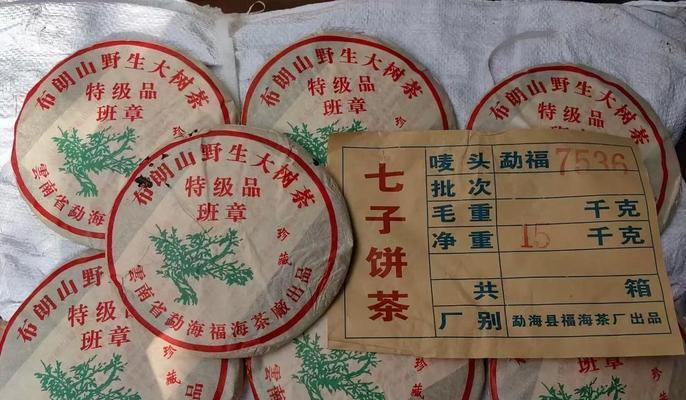 布朗山野生大树茶
特级品
班章
珍
布朗山野生大树茶
特级品
班章
珍
布朗山野生大树茶
特级品
布朗山野生大树茶
特级品
班章
珍藏
雲南省勐海福海茶廠出品
雲南省勐海
七子饼茶
唛头 勐福 7536
批次
毛重 千克
净重 15 千克
共 箱
厂别 勐海县福海茶厂出品
布朗山野生
特级品
班章
珍藏